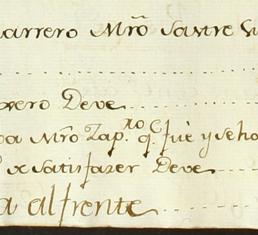 uarrero Mrõ Sastre
rero Deve
Mrõ Zap.to q.e fué y se ha
x satisfazer Deve
a al frente